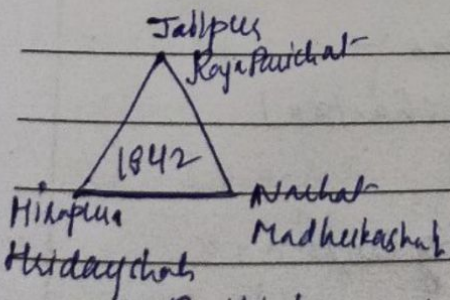 Jaitpur
Raja Parichat
1842
Hirapur
Hridayshah
Narhat
Madhukarshah